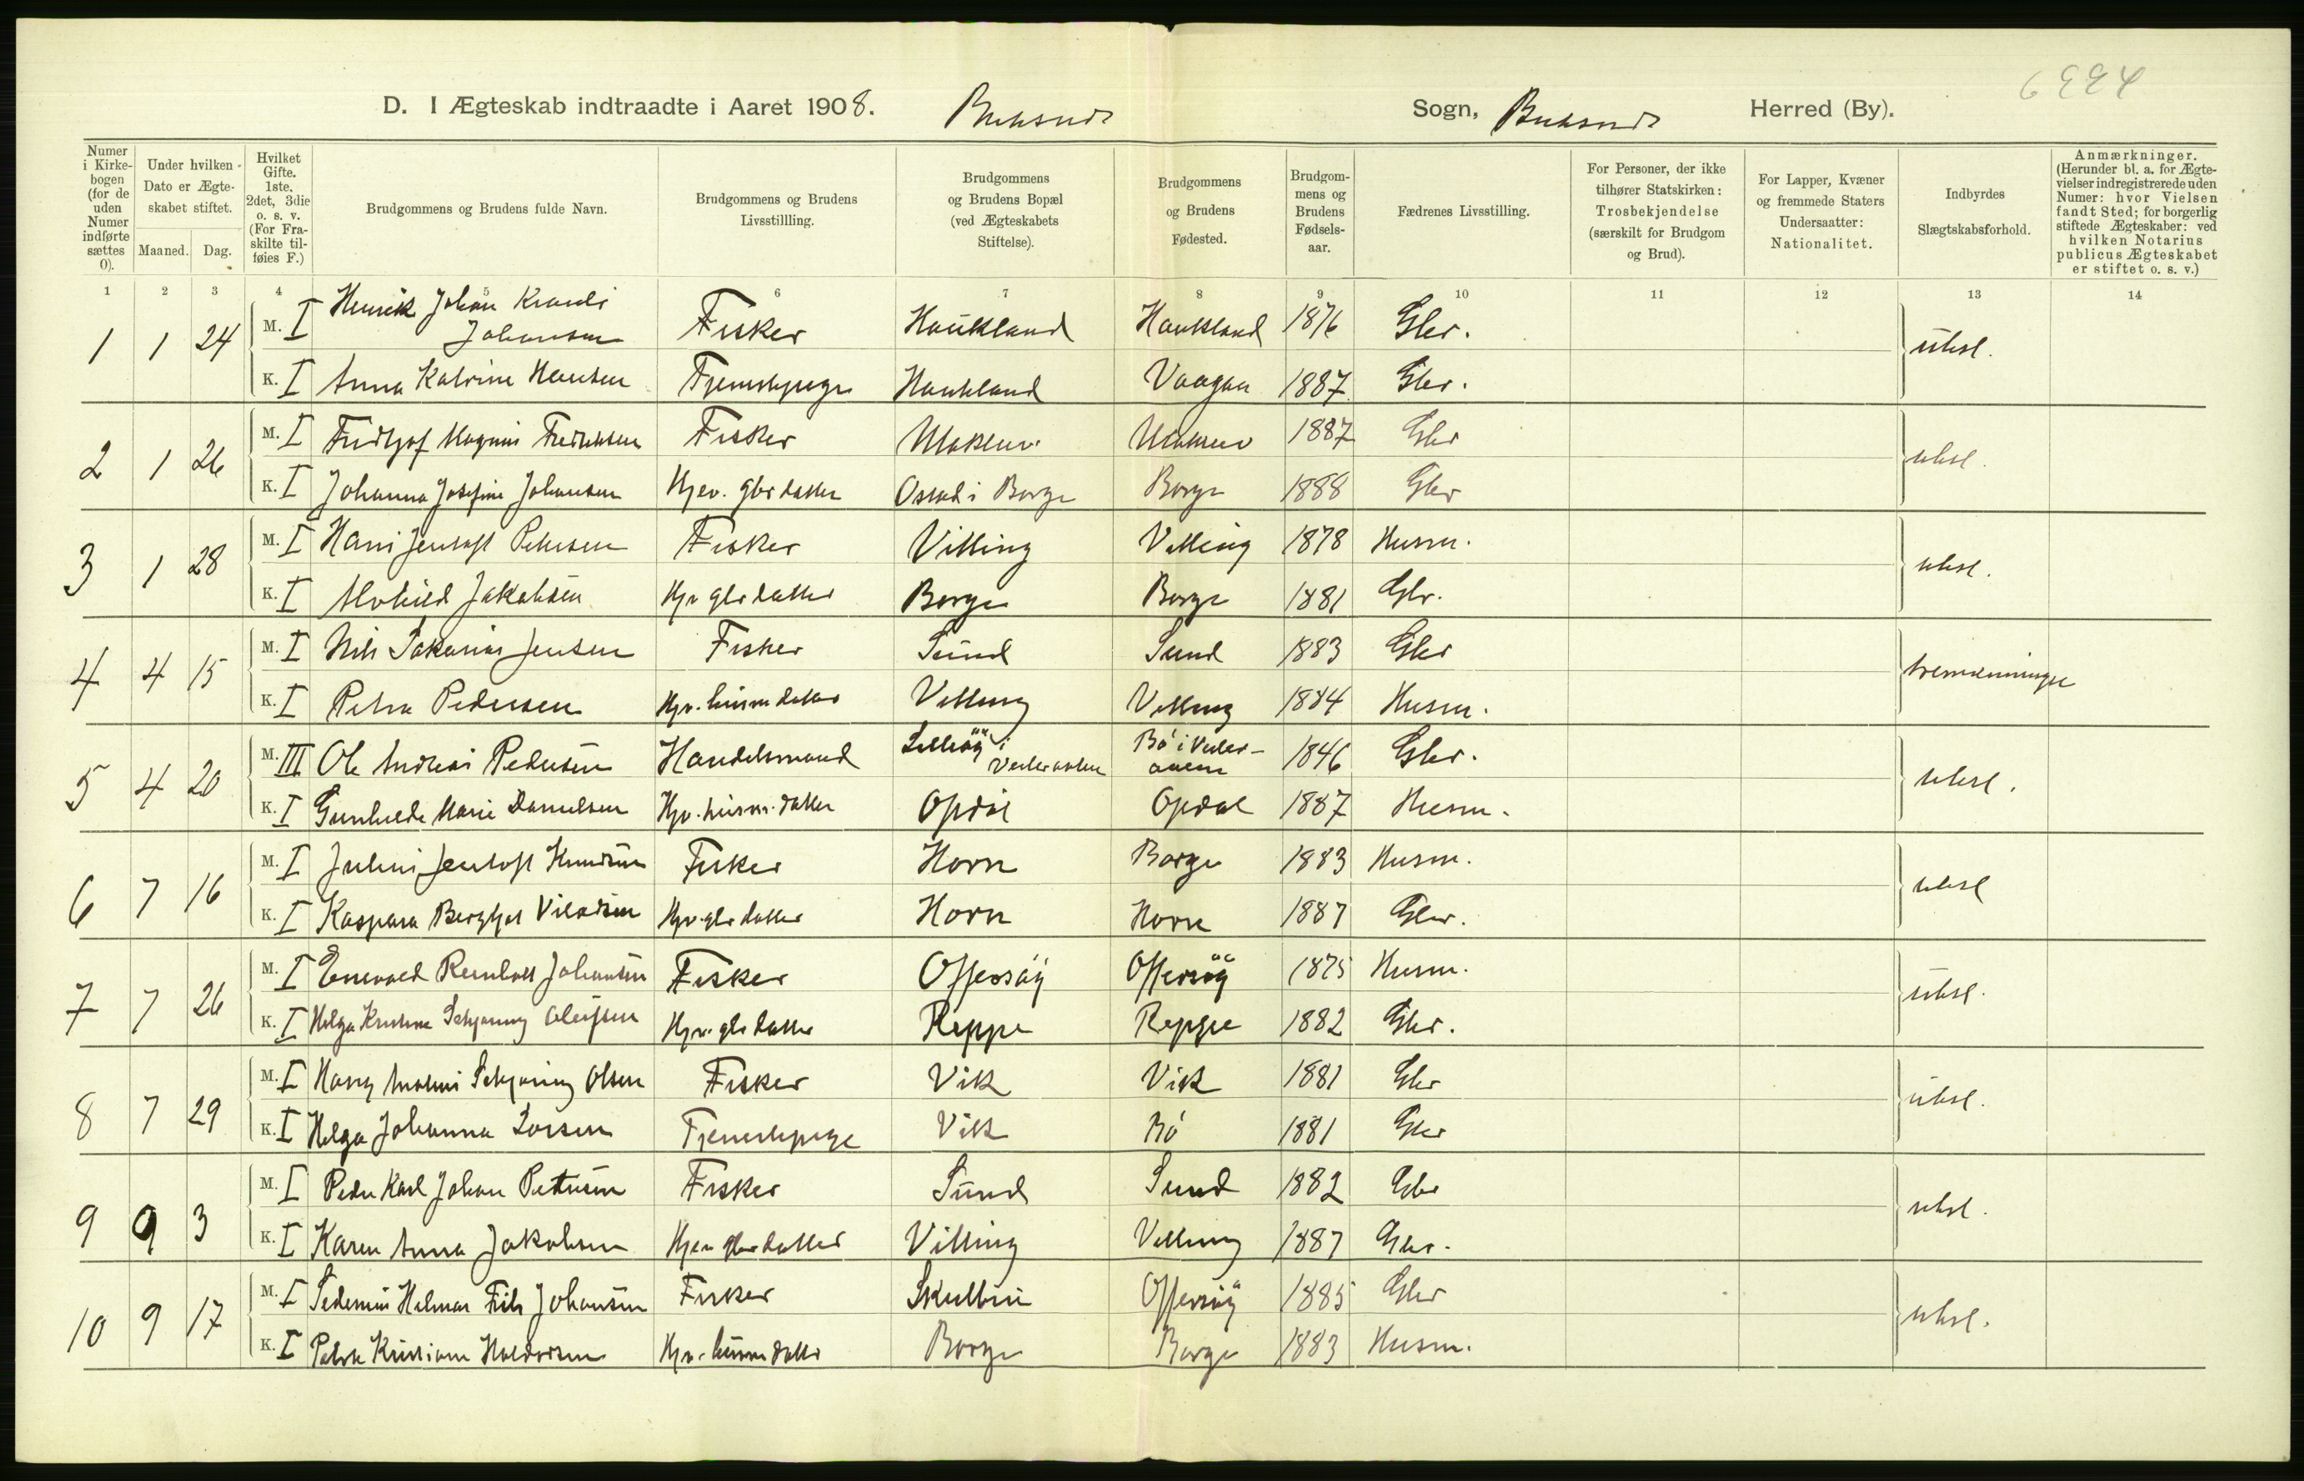 6994
D. I Ægteskab indtraadte i Aaret 1908. Buksnes Sogn, Buksnes Herred (By).
Numer i Kirkebogen (for de uden Numer indførte sættes 0).
Under hvilken Dato er Ægteskabet stiftet.
Maaned. Dag.
Hvilket Gifte. 1ste, 2det, 3die o. s. v. (For Fraskilte tilføies F.)
Brudgommens og Brudens fulde Navn.
Brudgommens og Brudens Livsstillling.
Brudgommens og Brudens Bopæl (ved Ægteskabets Stiftelse).
Brudgommens og Brudens Fødested.
Brudgommens og Brudens Fødselsaar.
Fædrenes Livsstilling.
For Personer, der ikke tilhører Statskirken: Trosbekjendelse (særskilt for Brudgom og Brud).
For Lapper, Kvæner og fremmede Staters Undersaatter: Nationalitet.
Indbyrdes Slægtskabsforhold.
Anmærkninger. (Herunder bl. a. for Ægtevielser indregistrerede uden Numer: hvor Vielsen fandt Sted; for borgerlig stiftede Ægteskaber: ved hvilken Notarius publicus Ægteskabet er stiftet o. s. v.)
1 2 3 4 5 6 7 8 9 10 11 12 13 14
1 1 24 M. I Henrik Johan
Johansen Fisker Haukland Haukland 1876 Gbr. ubesl.
K. I Anna Katrine Hansen Tjenestepige Haukland Vaagan 1887 Gbr.
2 1 26 M. I Fridtjof Magnus Fredriksen Fisker 1887 Gbr ubesl.
K. I Johanna Josefine Johansen Hjev. gbrdatter i Borge Borge 1888 Gbr
3 1 28 M. I Hans Jentoft Petersen Fisker Villing Villing 1878 Husm. ubesl.
K. I Alvhild Jakobsen Hjv gbrdatter Borge Borge 1881 Gbr.
4 4 15 M. I Nils Sakarias Jensen Fisker Sund Sund 1883 Gbr tremenninger
K. I Petra Pedersen Hjv. husmdatter Villing Villing 1884 Husm.
5 4 20 M. III Ole Andreas Pedersen Handelsmand i Vesteraalen Bö i Vesteraalen 1846 Gbr. ubesl.
K. I Gunhilde Marie Danielsen Hjv. husm.datter Opdöl Opdöl 1887 Husm.
6 7 16 M. I Julius Jentoft Knudsen Fisker Horn Borge 1883 Husm. ubesl
K. I Kaspara Bergljot Hjv. gbrdatter Horn Horn 1887 Gbr.
7 7 26 M. I Enevold Reinholt Johansen Fisker Offersöy Offersöy 1875 Husm. ubesl.
K. I Helga Kristine Schjöning Hjv. gbrdatter Reppe Reppe 1882 Gbr.
8 7 29 M. I Schjöning Olsen Fisker Vik Vik 1881 Gbr ubesl.
K. I Helga Johanna Larsen Tjenestepige Vik Bö 1881 Gbr
9 9 3 M. I Peder Karl Johan Petersen Fisker Sund Sund 1882 Gbr ubesl.
K. I Karen Anna Jakobsen Hjev gbrdatter Villing Villing 1887 Gbr.
10 9 17 M. I Hilmar Johansen Fisker Skulbru Offersöy 1885 Gbr ubesl.
K. I Petra Kristiane Haldorsen Hjv. husmdatter Borge Borge 1883 Husm.